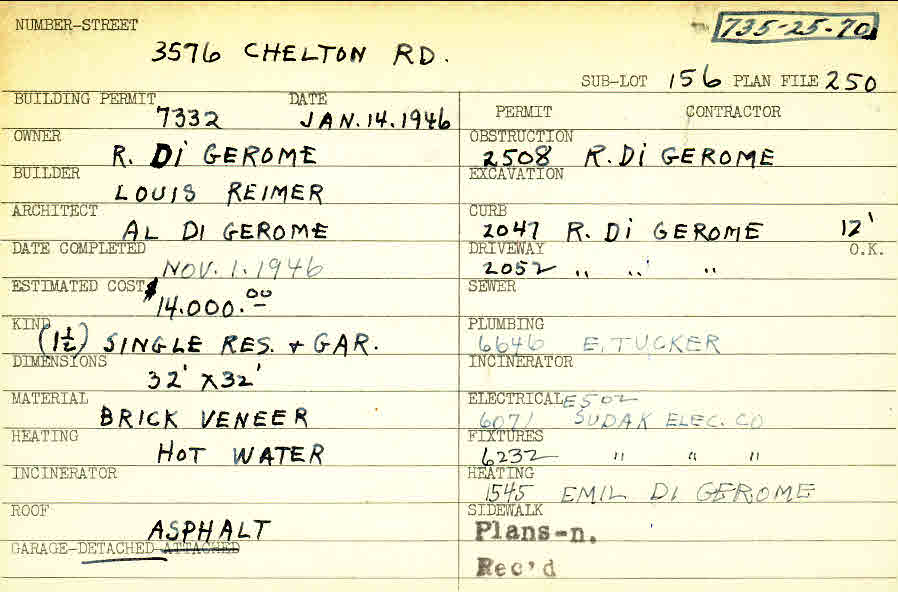 NUMBER-STREET
735-25-70
3576 CHELTON RD.
SUB-LOT 156 PLAN FILE 250
BUILDING PERMIT DATE
7332 JAN.14.1946
OWNER
R. Di GEROME
BUILDER
LOUIS REIMER
ARCHITECT
AL DI GEROME
DATE COMPLETED
NOV. 1. 1946
ESTIMATED COST
$14.000.00
KIND
(1½) SINGLE RES. + GAR.
DIMENSIONS
32' X 32'
MATERIAL
BRICK VENEER
HEATING
HOT WATER
INCINERATOR
ROOF
ASPHALT
GARAGE-DETACHED-ATTACHED
PERMIT CONTRACTOR
OBSTRUCTION
2508 R. Di GEROME
EXCAVATION
CURB
2047 R. Di GEROME 12'
DRIVEWAY O.K.
2052 " " "
SEWER
PLUMBING
6646 E. TUCKER
INCINERATOR
ELECTRICAL E502
6071 SUDAK ELEC. CO
FIXTURES
6232 " " "
HEATING
1545 EMIL DI GEROME
SIDEWALK
Plans-n.
Rec'd